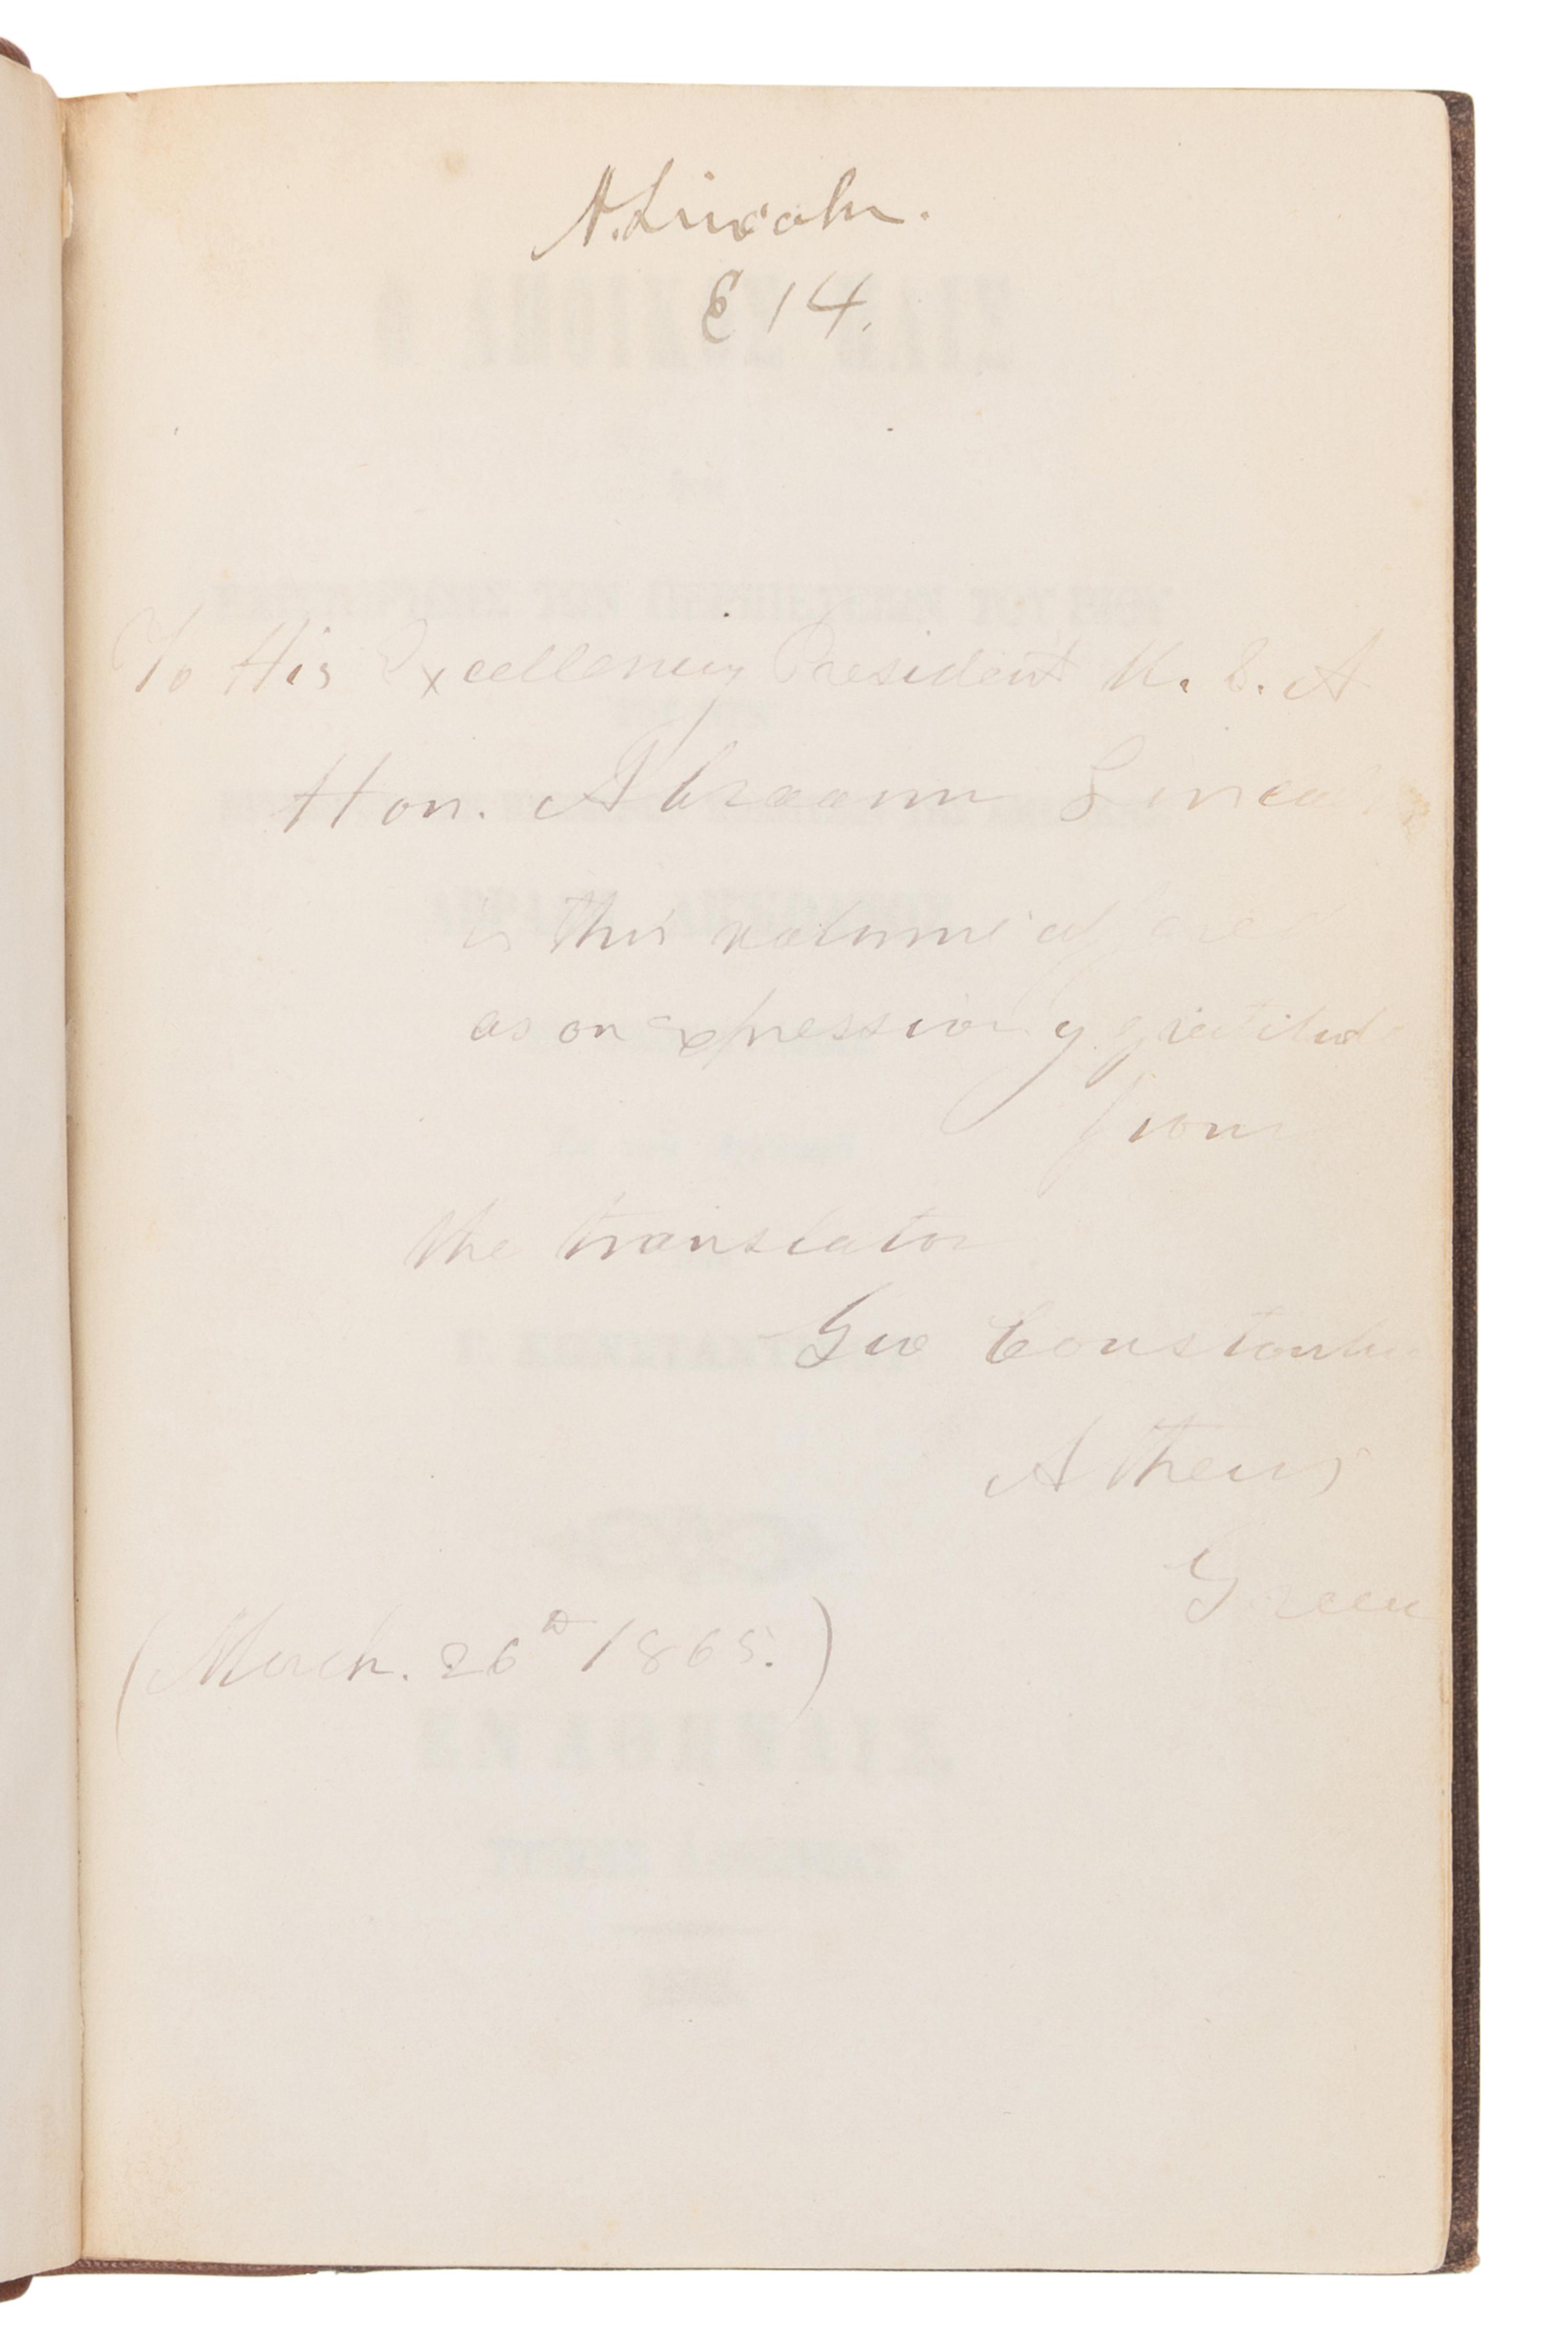 A. Lincoln.
E 14.
To His Excellency President U. S. A
Hon. Abraam Lincoln
is this volume offered
as an expression of gratitude
from
the translator
Geo Constantin
Athens
Greece
(March. 26th 1865.)